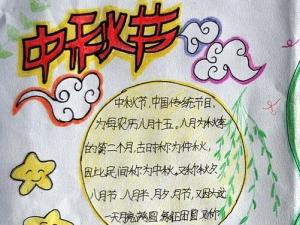 中秋节
中秋节,中国传统节日,
为每农历八月十五。八月为秋季
的第二个月,古时称为仲秋,
因此民间称为中秋。又称秋夕
八月节、八月半、月夕、月节,又因为这
一天月亮满圆,象征团圆,又称